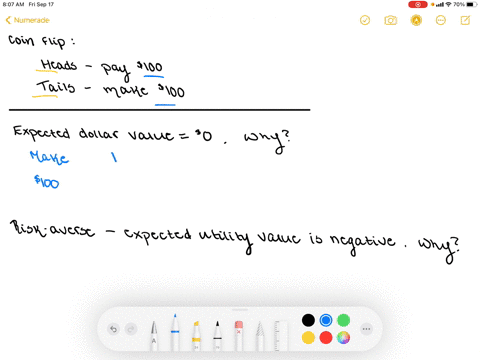 8:07 AM Fri Sep 17
70%
Numerade
Coin flip:
Heads - pay $100
Tails - make $100
Expected dollar value = $0. Why?
Make
$100
Risk-averse - expected utility value is negative. Why?